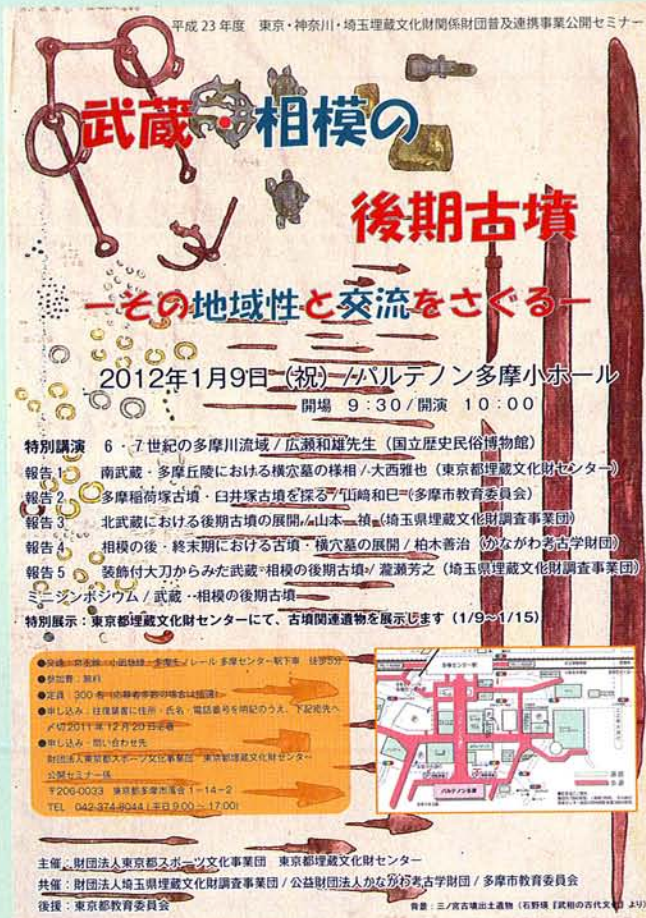 平成23年度 東京・神奈川・埼玉埋蔵文化財関係財団普及連携事業公開セミナー
武蔵・相模の
後期古墳
ーその地域性と交流をさぐるー
2012年1月9日（祝）/パルテノン多摩小ホール
開場 9:30/開演 10:00
特別講演 6・7世紀の多摩川流域/広瀬和雄先生（国立歴史民俗博物館）
報告1 南武蔵・多摩丘陵における横穴墓の様相/大西雅也（東京都埋蔵文化財センター）
報告2 多摩稲荷塚古墳・臼井塚古墳を探る/山﨑和巳（多摩市教育委員会）
報告3 北武蔵における後期古墳の展開/山本 禎（埼玉県埋蔵文化財調査事業団）
報告4 相模の後・終末期における古墳・横穴墓の展開/柏木善治（かながわ考古学財団）
報告5 装飾付大刀からみた武蔵・相模の後期古墳/瀧瀬芳之（埼玉県埋蔵文化財調査事業団）
ミニシンポジウム/武蔵・相模の後期古墳
特別展示：東京都埋蔵文化財センターにて、古墳関連遺物を展示します（1/9～1/15）
●交通：京王線・小田急線・多摩モノレール 多摩センター駅下車 徒歩5分
●参加費：無料
●定員：300名（応募者多数の場合は抽選）
●申し込み：往復葉書に住所・氏名・電話番号を明記のうえ、下記宛先へ
〆切2011年12月20日必着
●申し込み・問い合わせ先
財団法人東京都スポーツ文化事業団 東京都埋蔵文化財センター
公開セミナー係
〒206-0033 東京都多摩市落合1-14-2
TEL 042-374-8044（平日9:00～17:00）
多摩センター駅
パルテノン多摩
主催：財団法人東京都スポーツ文化事業団 東京都埋蔵文化財センター
共催：財団法人埼玉県埋蔵文化財調査事業団/公益財団法人かながわ考古学財団/多摩市教育委員会
後援：東京都教育委員会
背景：三ノ宮古墳出土遺物（石野瑛『武相の古代文化』より）